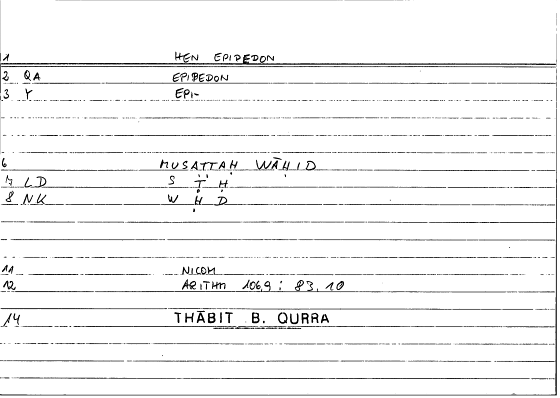 1 HEN EPIPEDON
2 QA EPIPEDON
3 Y EPI-
6 MUSAṬṬAḤ WĀḤID
7 LD S Ṭ Ḥ
8 NK W Ḥ D
11 NICOM
12 ARITHM 106,9 : 83.10
14 THĀBIT B. QURRA